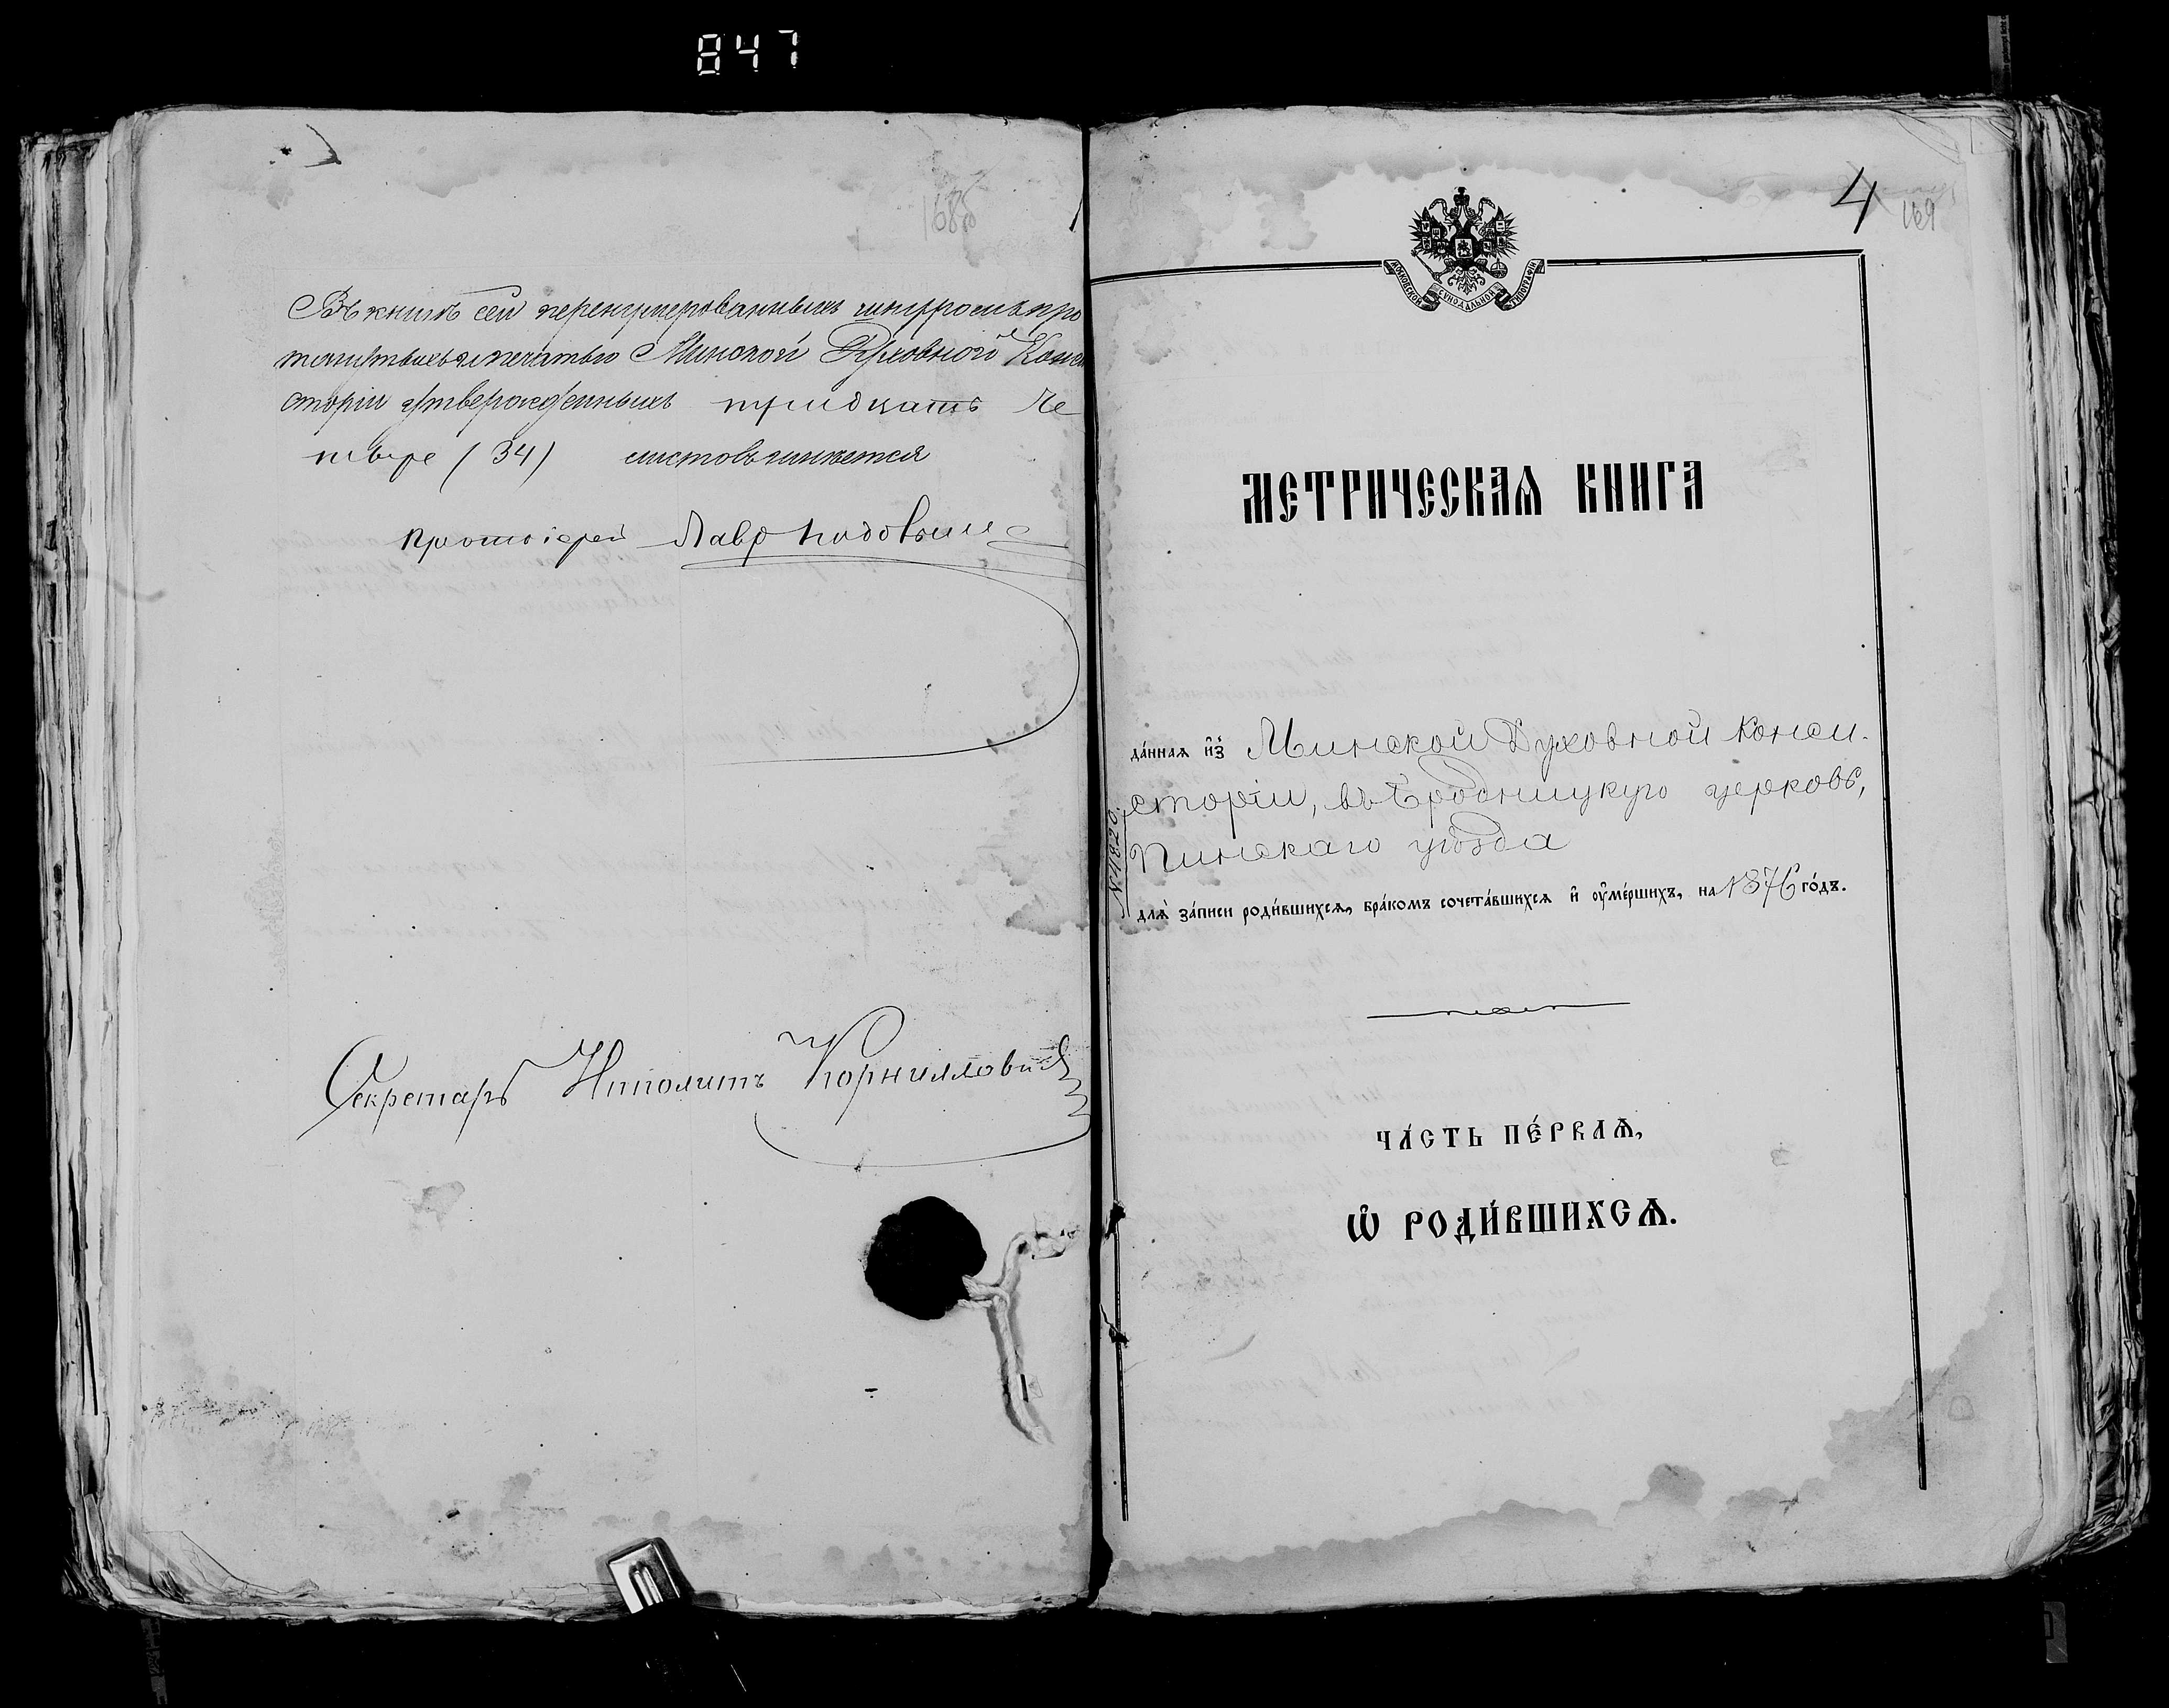 847
168об
Въ книгѣ сей перенумерованныхъ шнуромъ про
тянутыхъ и печатью Минской Духовной Конси
сторіи утвержденныхъ тридцать че
тыре (34) листовъ имѣется
Протоіерей Лавр
Секретарь Ипполитъ Корниллович
4
169
МОСКОВСКОЙ СѴНОДАЛЬНОЙ ТИПОГРАФІИ
МЕТРИЧЕСКАѦ КНИГА
да́ннаѧ и҆з̾ Минской Духовной Конси-
сторіи, въ Бродницкую церковь,
Пинскаго уѣзда
№ 4820.
длѧ̀ за́писи роди́вшихсѧ, бра́комъ сочета́вшихсѧ и҆ ᲂу҆ме́ршихъ, на 1876 го́дъ.
ЧА́СТЬ ПЕ́РВАѦ,
Ѡ҆ РОДИ́ВШИХСѦ.